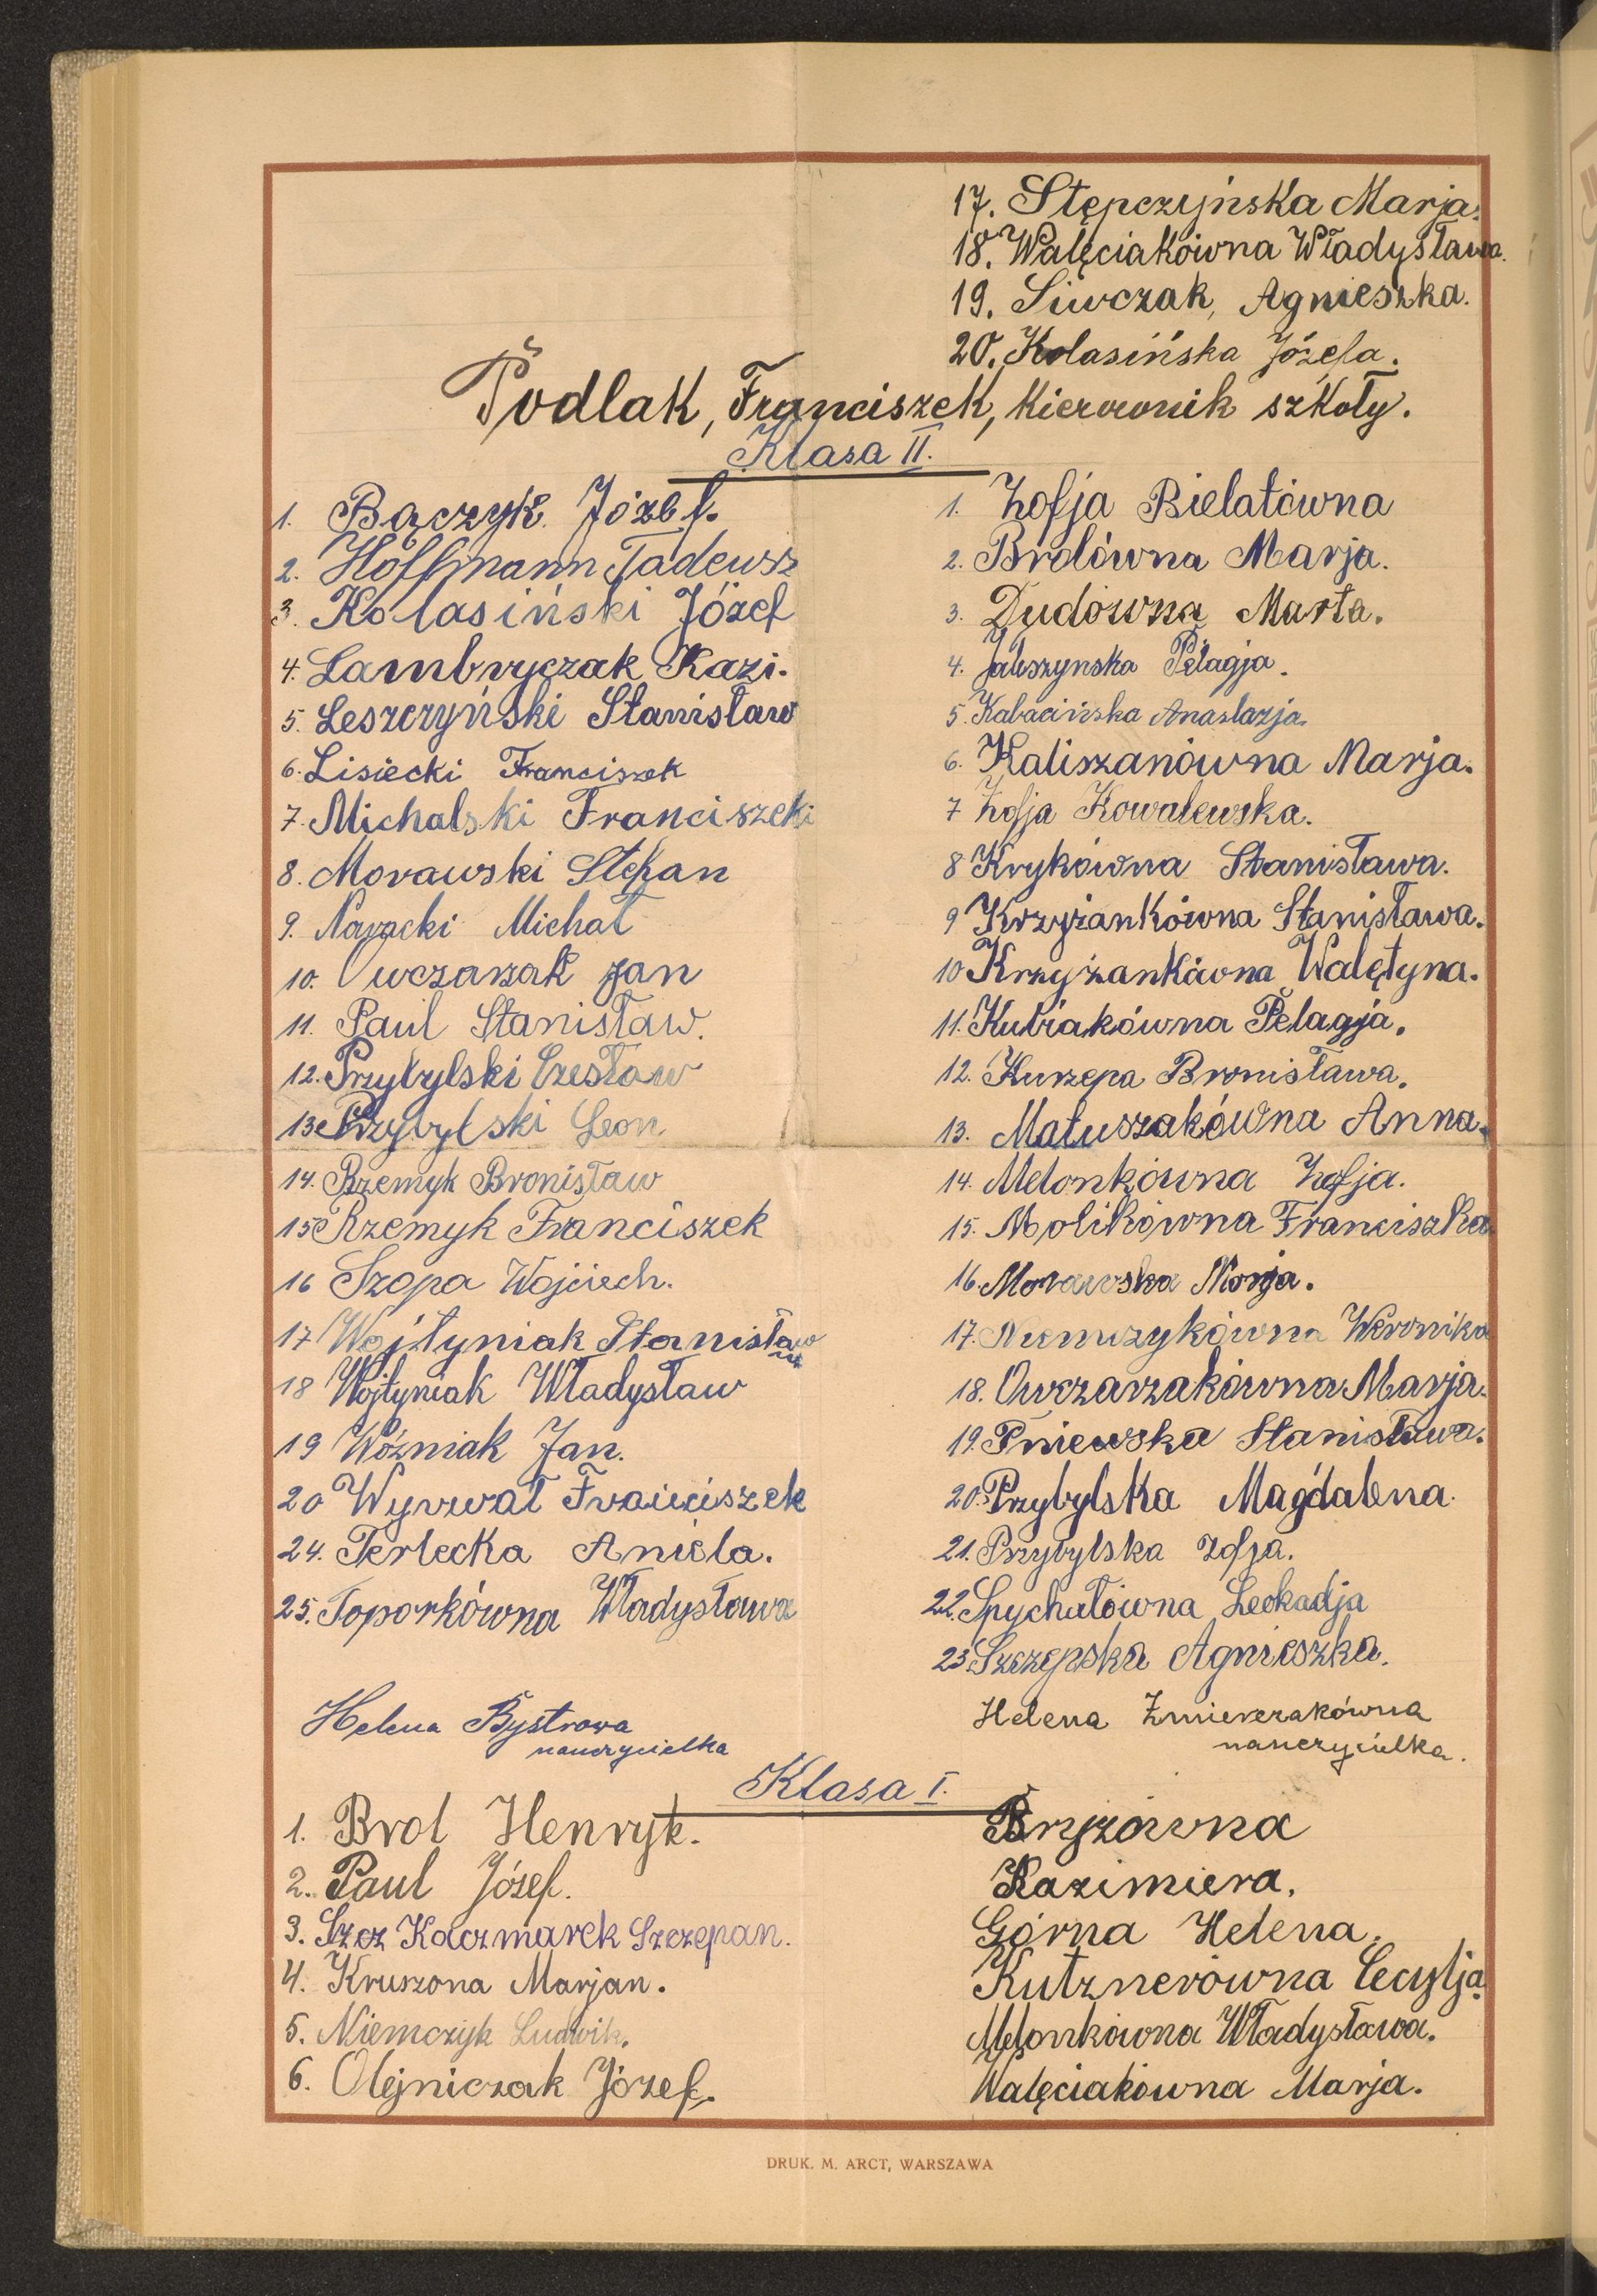 17. Stępczyńska Marja.
18. Walęciakówna Władysława.
19. Siwczak, Agnieszka.
20. Kolasińska Józefa.
Podlak, Franciszek, kierownik szkoły.
Klasa II.
1. Bączyk Józef.
2. Hoffmann Tadeusz
3. Kolasiński Józef
4. Lambryczak Kazi.
5. Leszczyński Stanisław
6. Lisiecki Franciszek
7. Michalski Franciszek
8. Morawski Stefan
9. Nowacki Michał
10. Owczarzak Jan
11. Paul Stanisław.
12. Przybylski Czesław
13. Przybylski Leon
14. Rzemyk Bronisław
15 Rzemyk Franciszek
16 Szopa Wojciech.
17 Wojtyniak Stanisław
18 Wojtyniak Władysław
19 Woźniak Jan.
20 Wyrwał Franciszek
24. Terlecka Aniela.
25. Toporkówna Władysława
Helena Bystrowa
nauczycielka
1. Zofja Bielatówna
2. Brolówna Marja.
3. Dudówna Marta.
4. Pelagja.
5. Kabacińska Anastazja.
6. Kaliszanówna Marja.
7 Zofja Kowalewska.
8 Krykówna Stanisława.
9 Krzyżankówna Stanisława.
10 Krzyżankówna Walętyna.
11. Kubiakówna Pelagja.
12. Kurzepa Bronisława.
13. Matuszakówna Anna.
14. Melonkówna Zofja.
15. Molikówna Franciszka
16. Morawska Marja.
17. Niemczykówna Weronika
18. Owczarzakówna Marja.
19. Pniewska Stanisława.
20. Przybylska Magdalena.
21. Przybylska Zofja.
22. Spychałówna Leokadja
23. Szczepska Agnieszka.
Helena
nauczycielka.
Klasa I.
1. Brol Henryk.
2. Paul Józef.
3. Szcz Kaczmarek Szczepan.
4. Kruszona Marjan.
5. Niemczyk Ludwik.
6. Olejniczak Józef.
Bryzówna
Kazimiera.
Górna Helena.
Kutznerówna Cecylja.
Melonkówna Władysława.
Walęciakówna Marja.
DRUK. M. ARCT, WARSZAWA